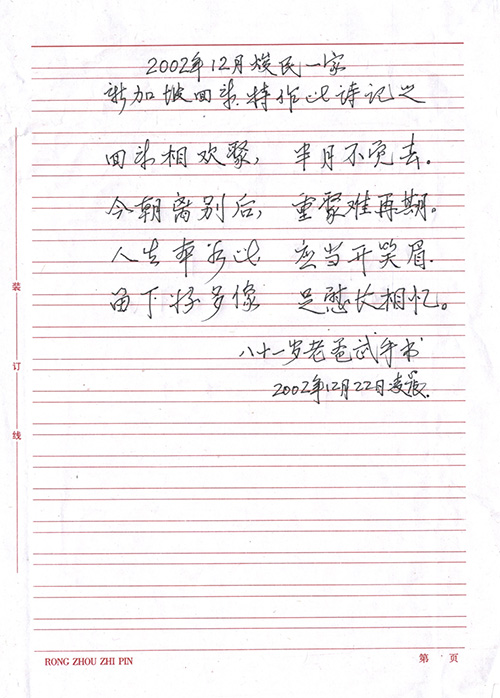 2002年12月焕民一家
新加坡回来.特作此诗记之
回来相欢聚，半月不觉去.
今朝离别后，重聚难再期。
人生本如此 应当开笑眉.
留下好多像 足慰长相忆。
八十一岁老爸武手书
2002年12月22日凌晨.
装
订
线
RONG ZHOU ZHI PIN 第 页